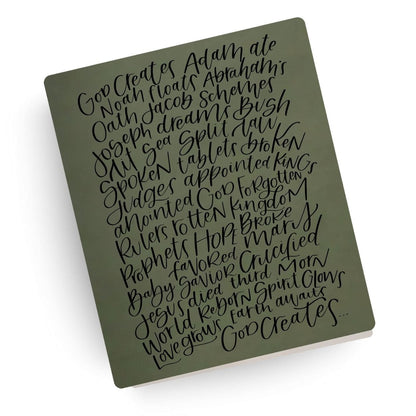 God Creates Adam ate
Noah floats Abraham's
Oath Jacob Schemes
Joseph dreams Bush
lit Sea Split Law
Spoken tablets Broken
Judges appointed Kings
anointed God Forgotten
Rulers rotten Kingdom
Prophets Hope Broke
favored Mary
Baby Savior Crucified
Jesus died third Morn
World Reborn Spirit Glows
Love grows Earth awaits
God Creates...